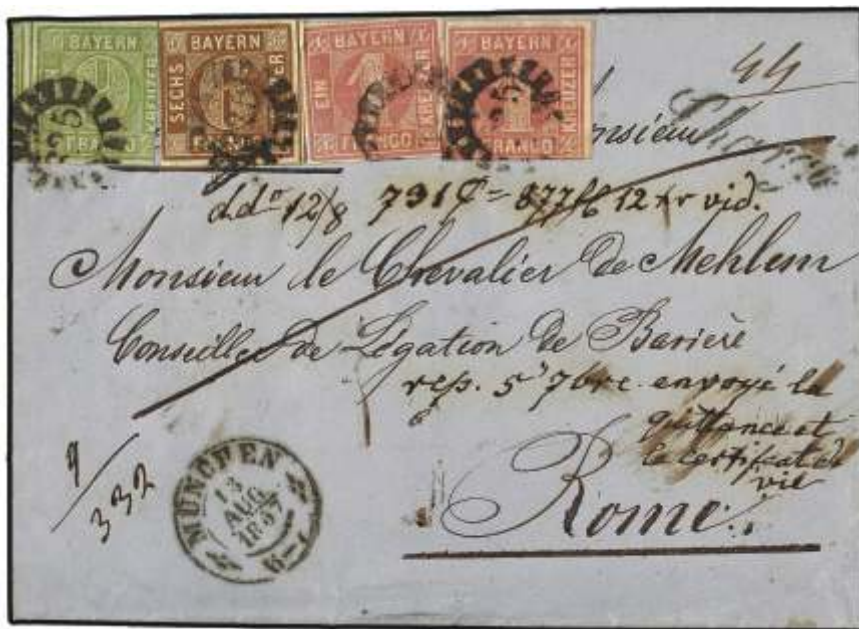 BAYERN KREUZER FRANCO
BAYERN SECHS KREUZER FRANCO
BAYERN EIN KREUZER FRANCO
BAYERN KREUZER FRANCO
44
Monsieur
dd° 12/8 731 = 877 fl 12 xr vid.
Monsieur le Chevalier de Mehlem
Conseiller de Légation de Bavière
resp. 5 7bre envoyé la
quittance et
le certificat de
vie
9/332
MÜNCHEN
13
AUG
1857
Rome.